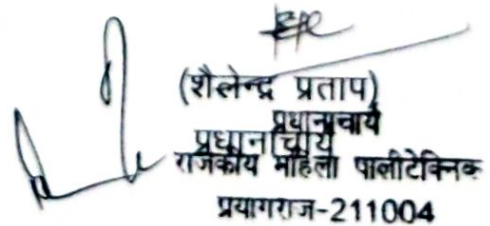 (शैलेन्द्र प्रताप)
प्रधानाचार्य
प्रधानाचार्य
राजकीय महिला पालीटेक्निक
प्रयागराज-211004